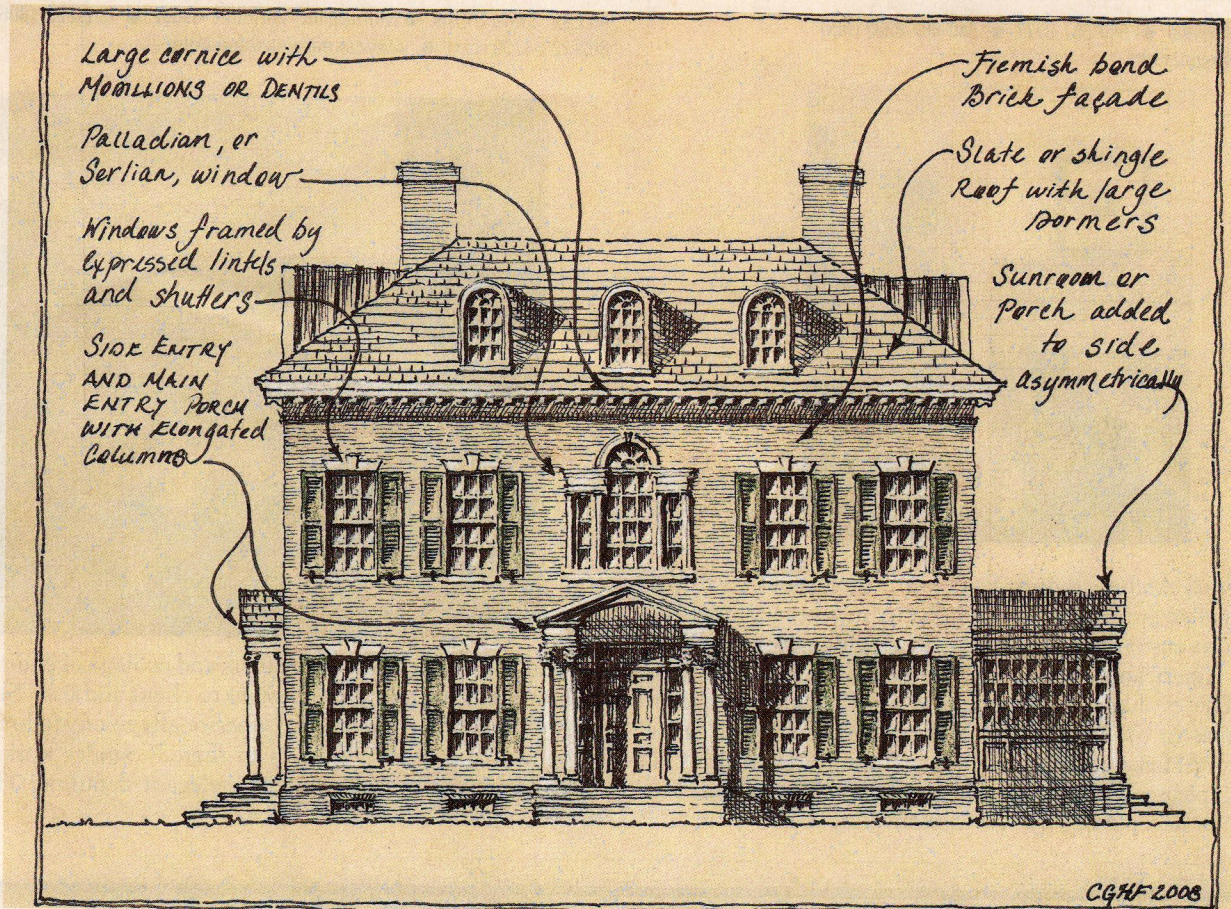 Large cornice with
MODILLIONS OR DENTILS
Palladian, or
Serlian, window
Windows framed by
expressed lintels
and shutters
SIDE ENTRY
AND MAIN
ENTRY PORCH
WITH Elongated
Columns
Flemish bond
Brick façade
Slate or shingle
Roof with large
Dormers
Sunroom or
Porch added
to side
asymmetrically
CGHF 2008